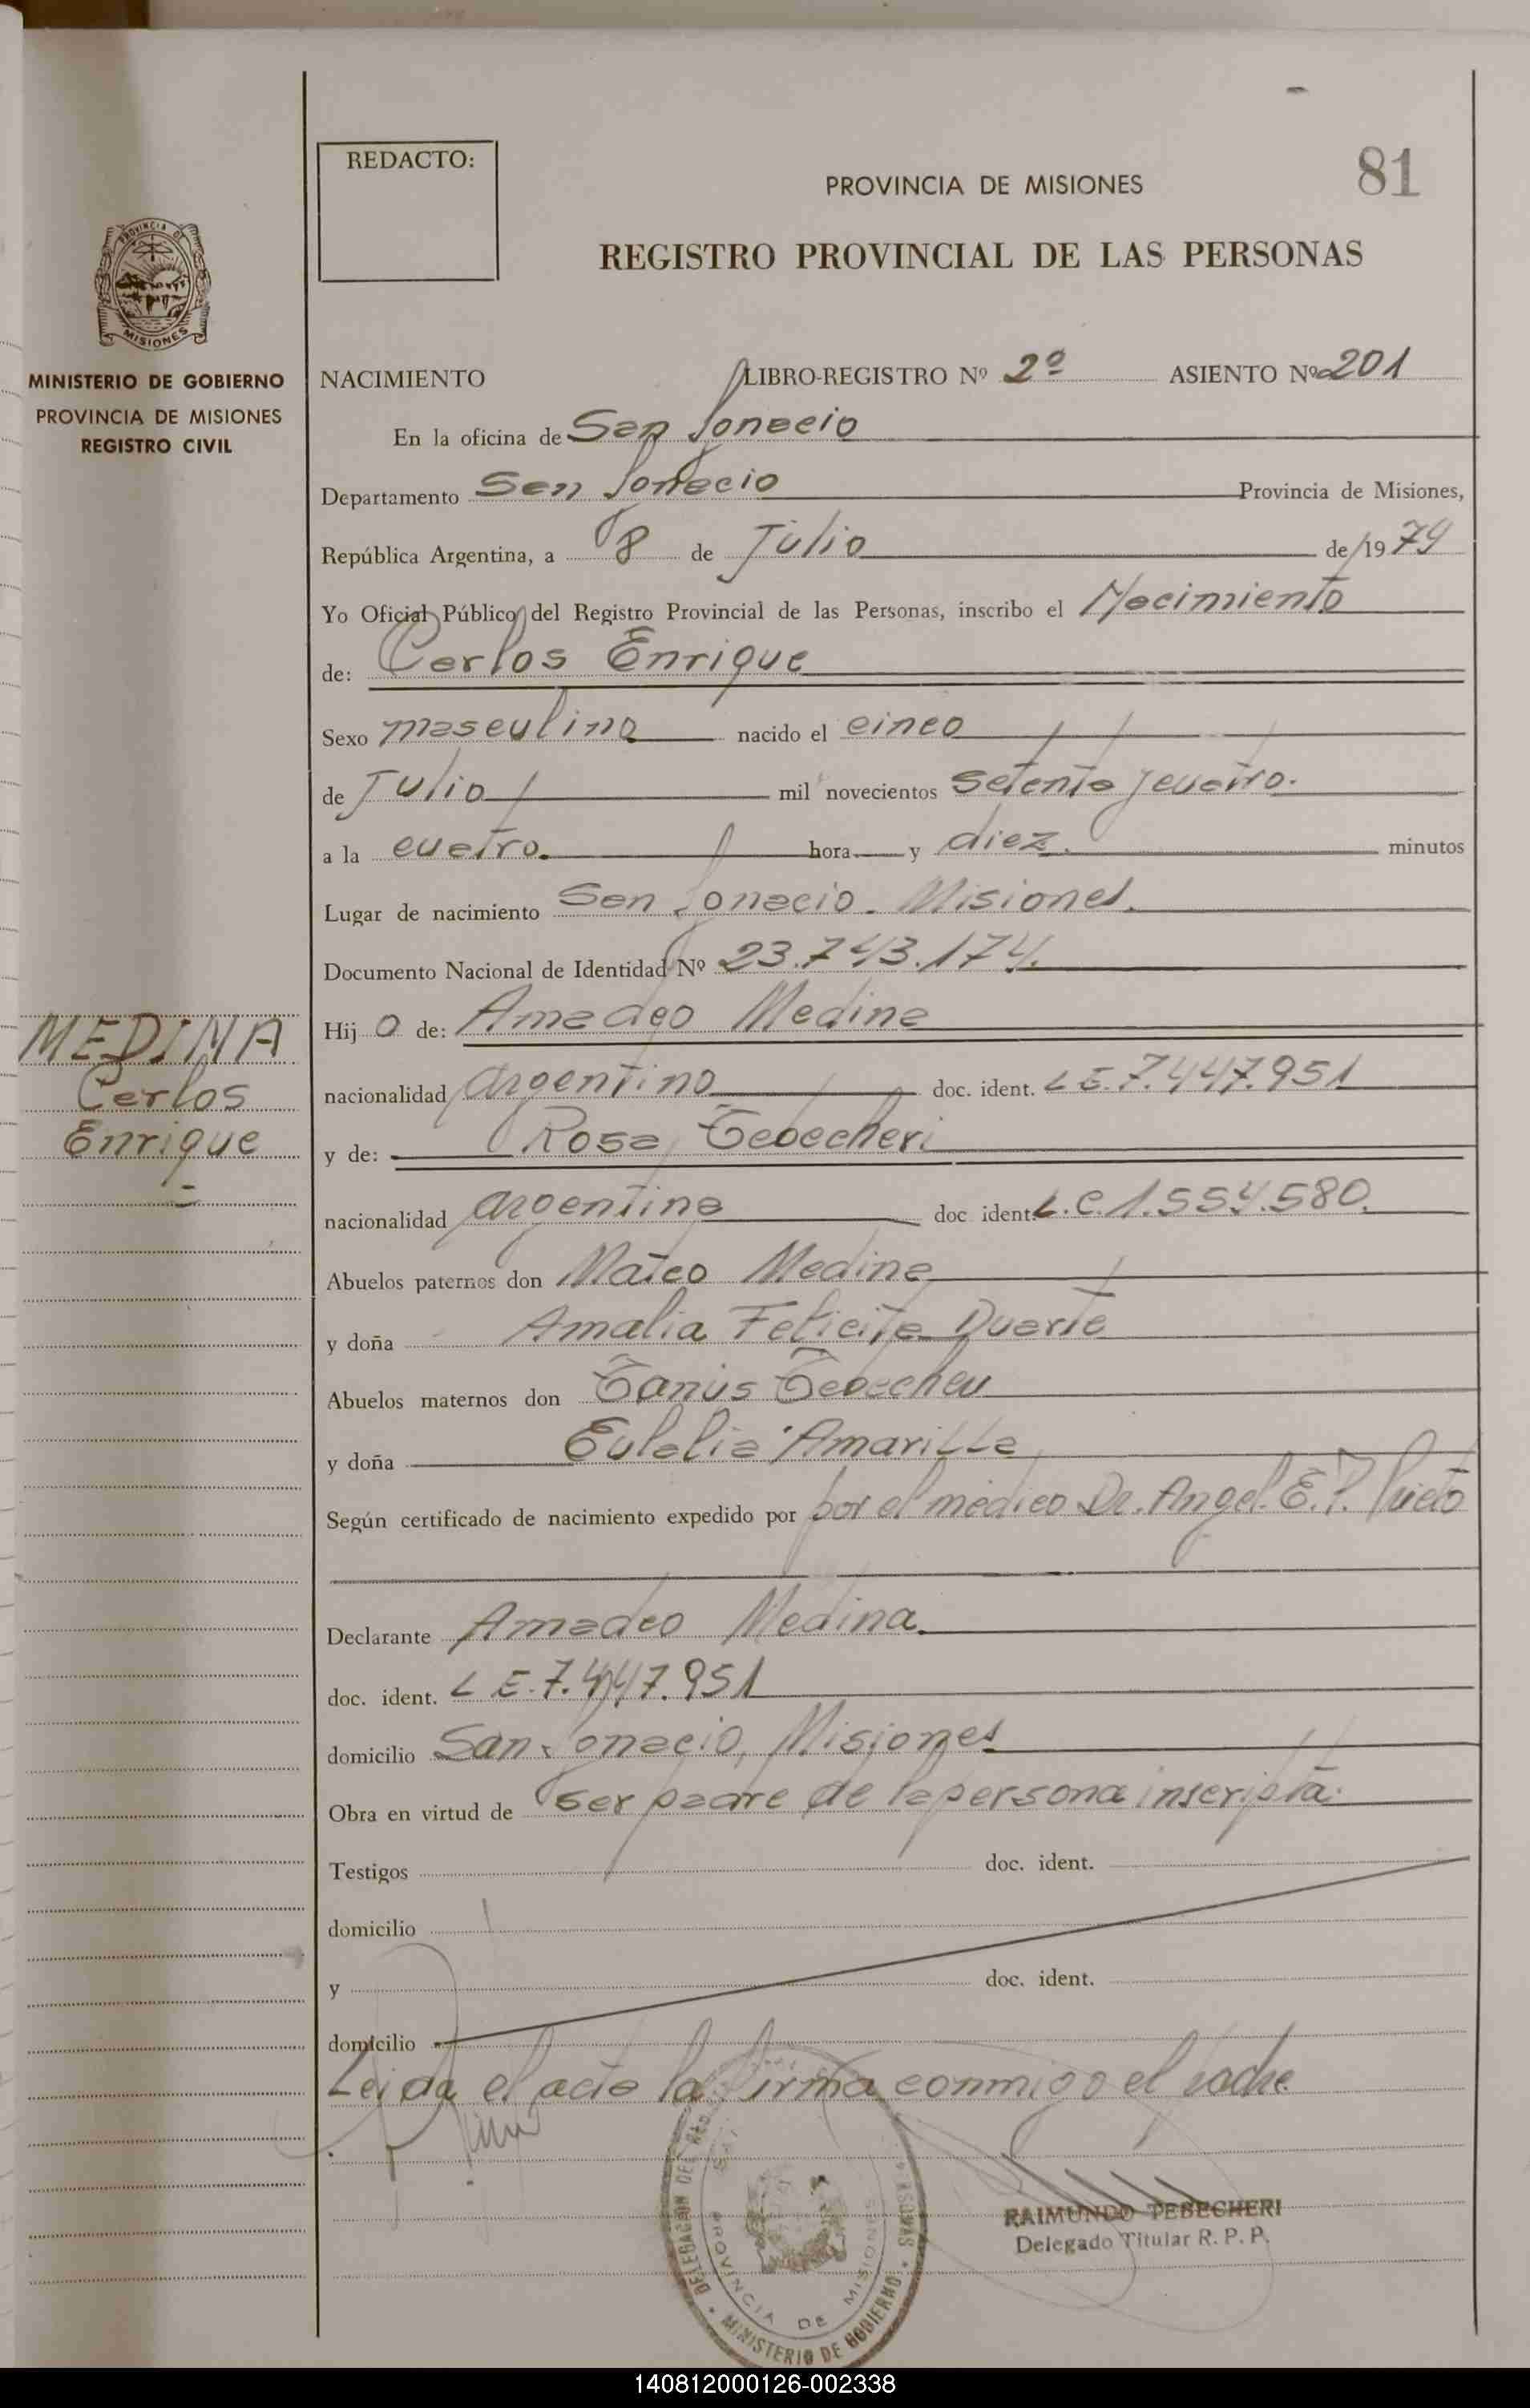 81
REDACTO:
PROVINCIA DE MISIONES
REGISTRO PROVINCIAL DE LAS PERSONAS
PROVINCIA DE
MISIONES
MINISTERIO DE GOBIERNO
PROVINCIA DE MISIONES
REGISTRO CIVIL
NACIMIENTO LIBRO-REGISTRO Nº 2º ASIENTO Nº 201
En la oficina de San Ignacio
Departamento San Ignacio Provincia de Misiones,
República Argentina, a 8 de Julio de 1974
Yo Oficial Público del Registro Provincial de las Personas, inscribo el Nacimiento
de: Carlos Enrique
Sexo masculino nacido el cinco
de Julio mil novecientos setenta y cuatro.
a la cuatro. hora y diez. minutos
Lugar de nacimiento San Ignacio. Misiones.
Documento Nacional de Identidad Nº 23.743.174.
MEDINA
Carlos
Enrique
Hijo de: Amadeo Medina
nacionalidad argentino doc. ident. L E. 7.447.951
y de: Rosa Tebecheri
nacionalidad argentina doc. ident. L.C. 1.554.580.
Abuelos paternos don Mateo Medina
y doña Amalia Felicita Duarte
Abuelos maternos don Tanús Tebecheri
y doña Eulalia Amarilla
Según certificado de nacimiento expedido por por el médico Dr. Angel E. P. Prieto
Declarante Amadeo Medina.
doc. ident. L E. 7.447.951
domicilio San Ignacio, Misiones
Obra en virtud de ser padre de la persona inscripta.
Testigos doc. ident.
domicilio
y doc. ident.
domicilio
Leida el acta la firma conmigo el padre
RAIMUNDO TEBECHERI
Delegado Titular R. P. P.
DELEGACION DEL
PROVINCIA DE MISIONES
MINISTERIO DE GOBIERNO
140812000126-002338